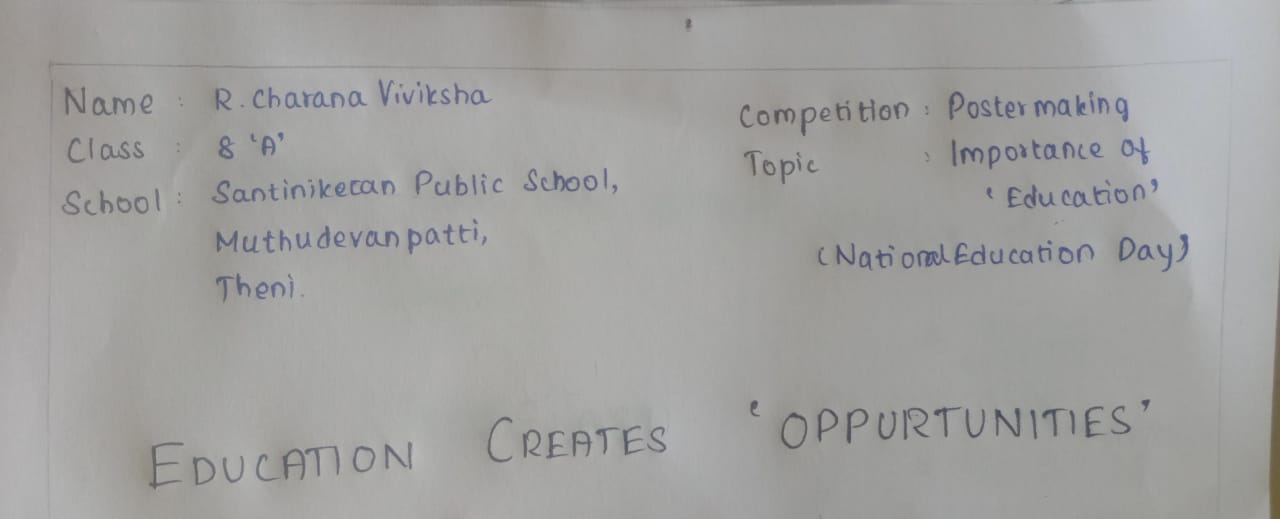 Name : R. Charana Viviksha
Class : 8 'A'
School : Santiniketan Public School,
Muthudevanpatti,
Theni.
Competition : Poster making
Topic : Importance of
'Education'
(National Education Day)
EDUCATION CREATES 'OPPURTUNITIES'